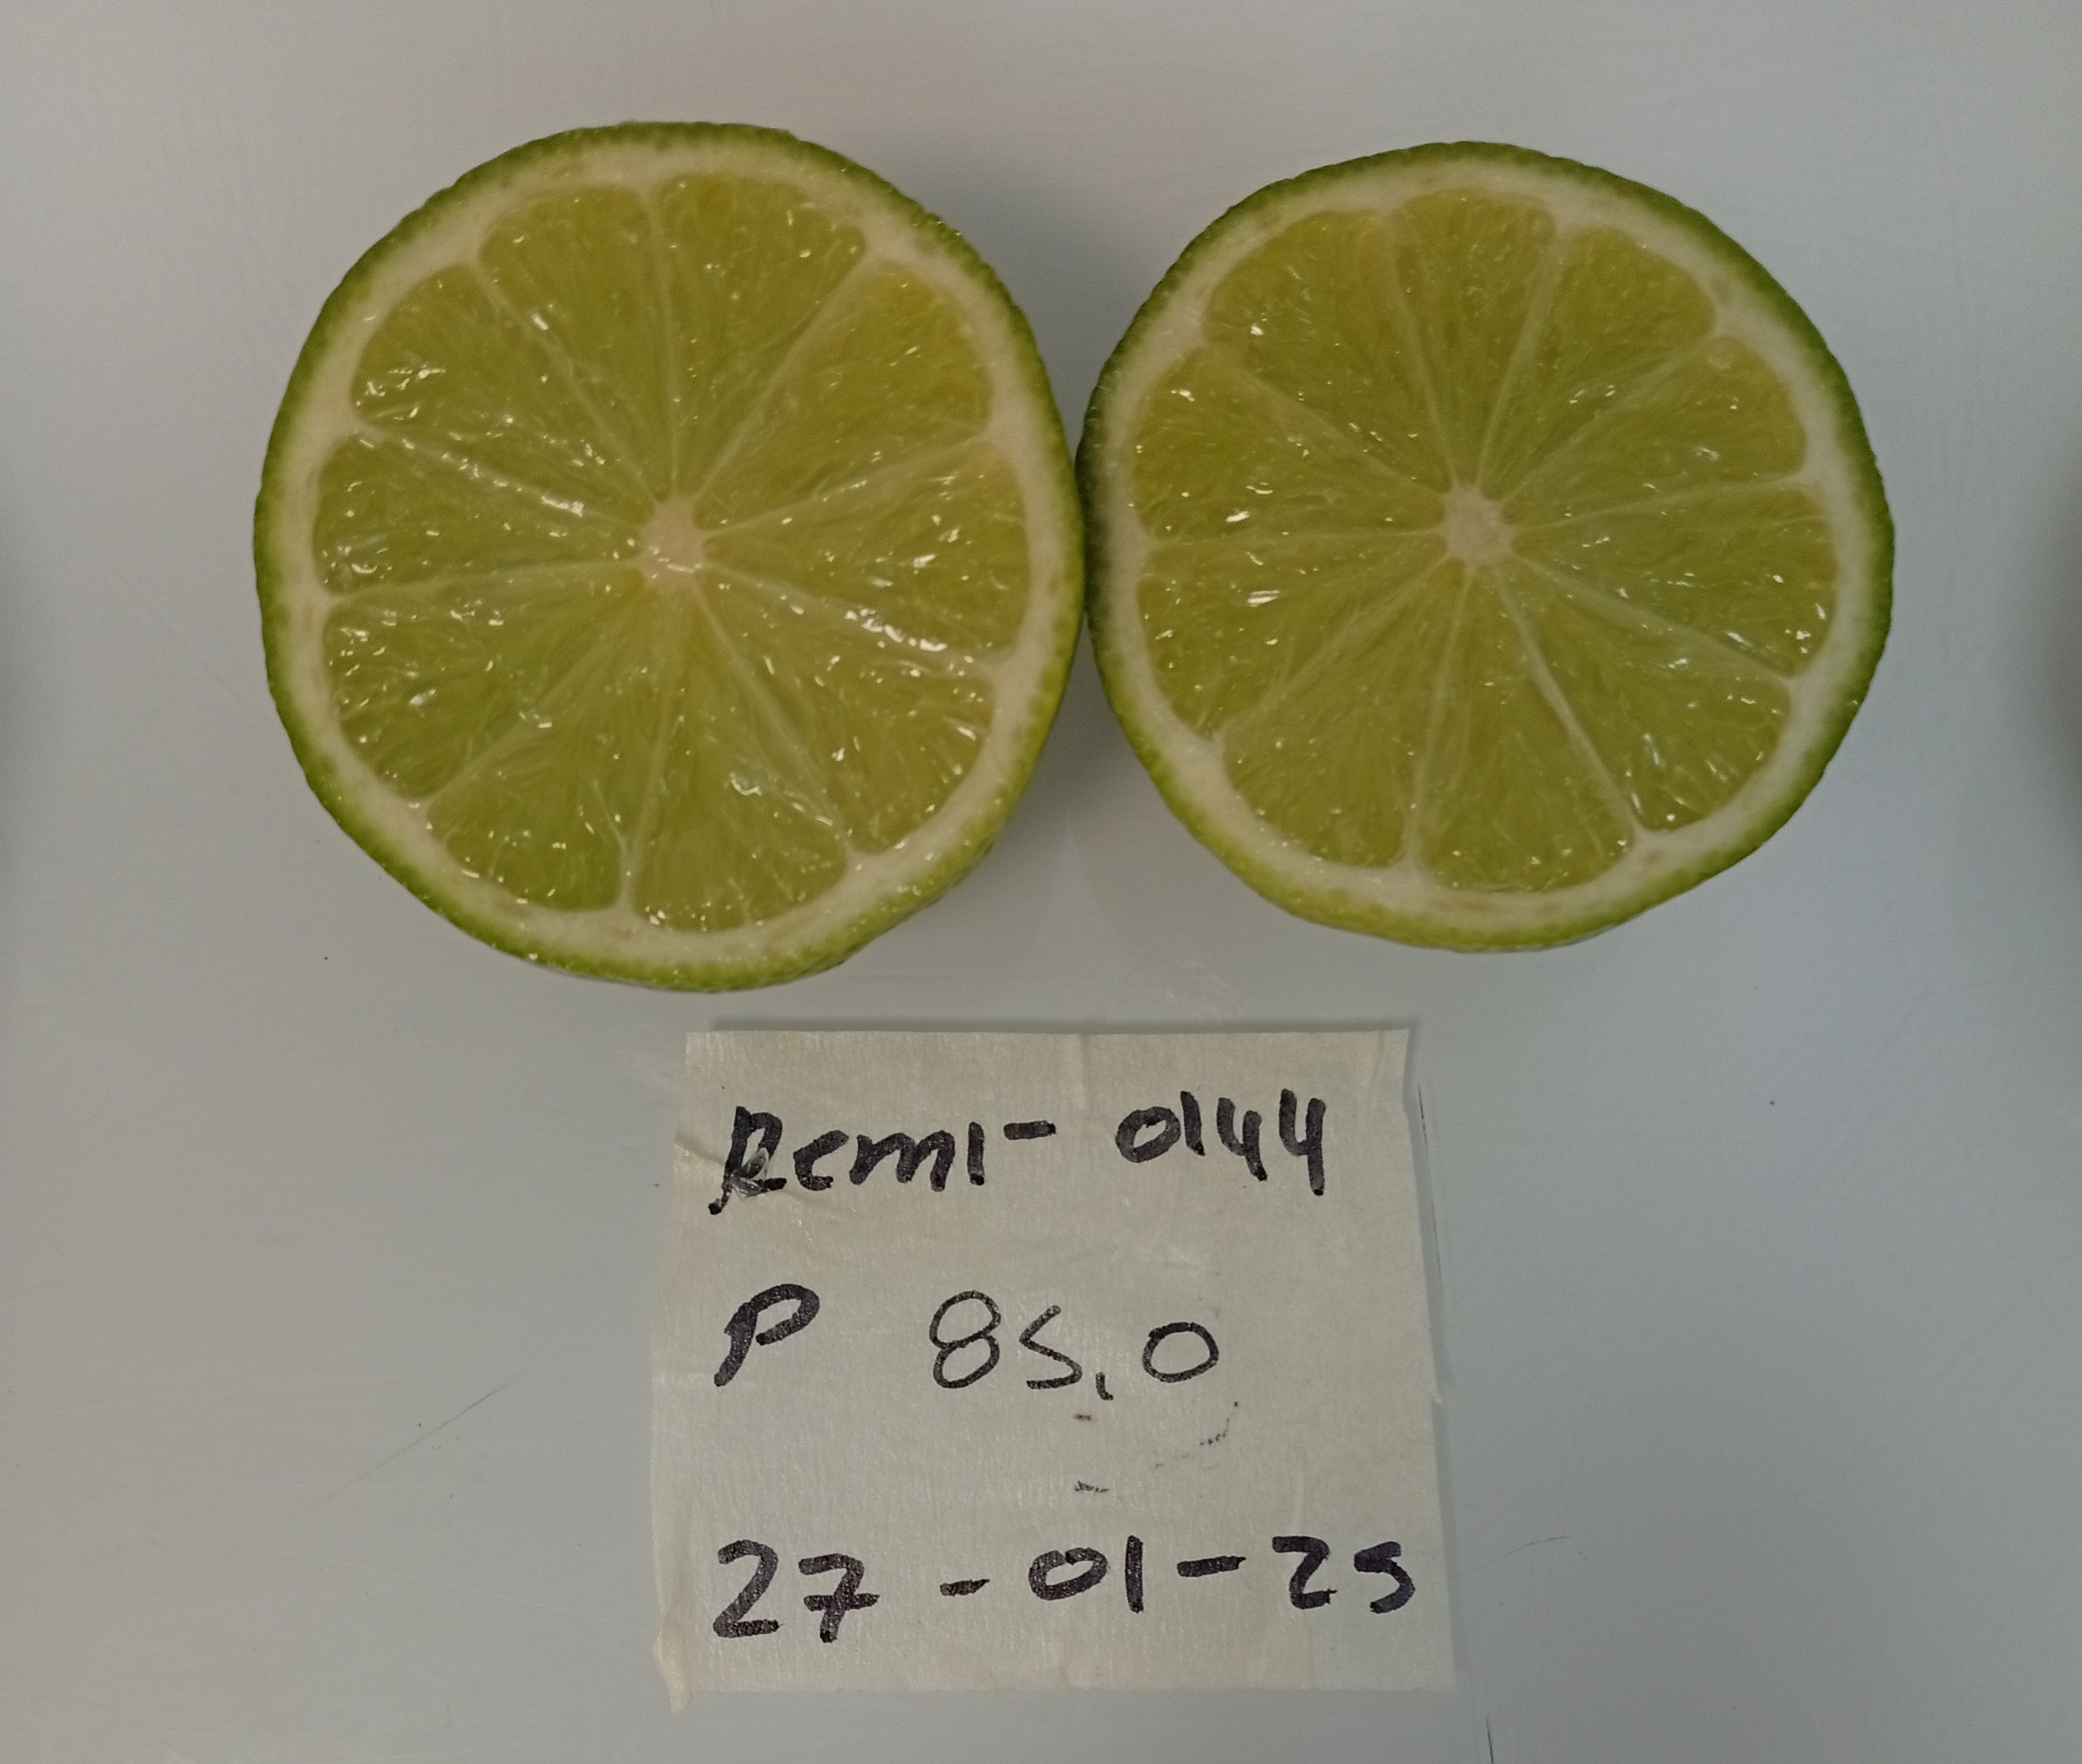 Remi- 0144
P 85.0
27-01-25